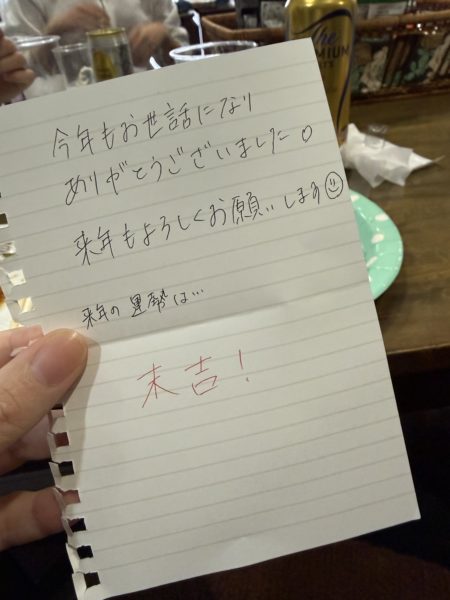 今年もお世話になり
ありがとうございました。
来年もよろしくお願いします☺
来年の運勢は…
末吉！
The
PREMIUM